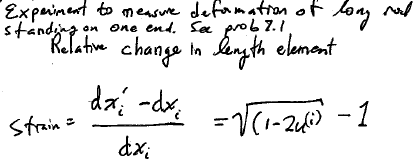 Experiment to measure deformation of long rod
standing on one end. See prob 7.1
Relative change in length element
strain = (dx_i' - dx_i) / dx_i = √(1-2u^(i)) - 1